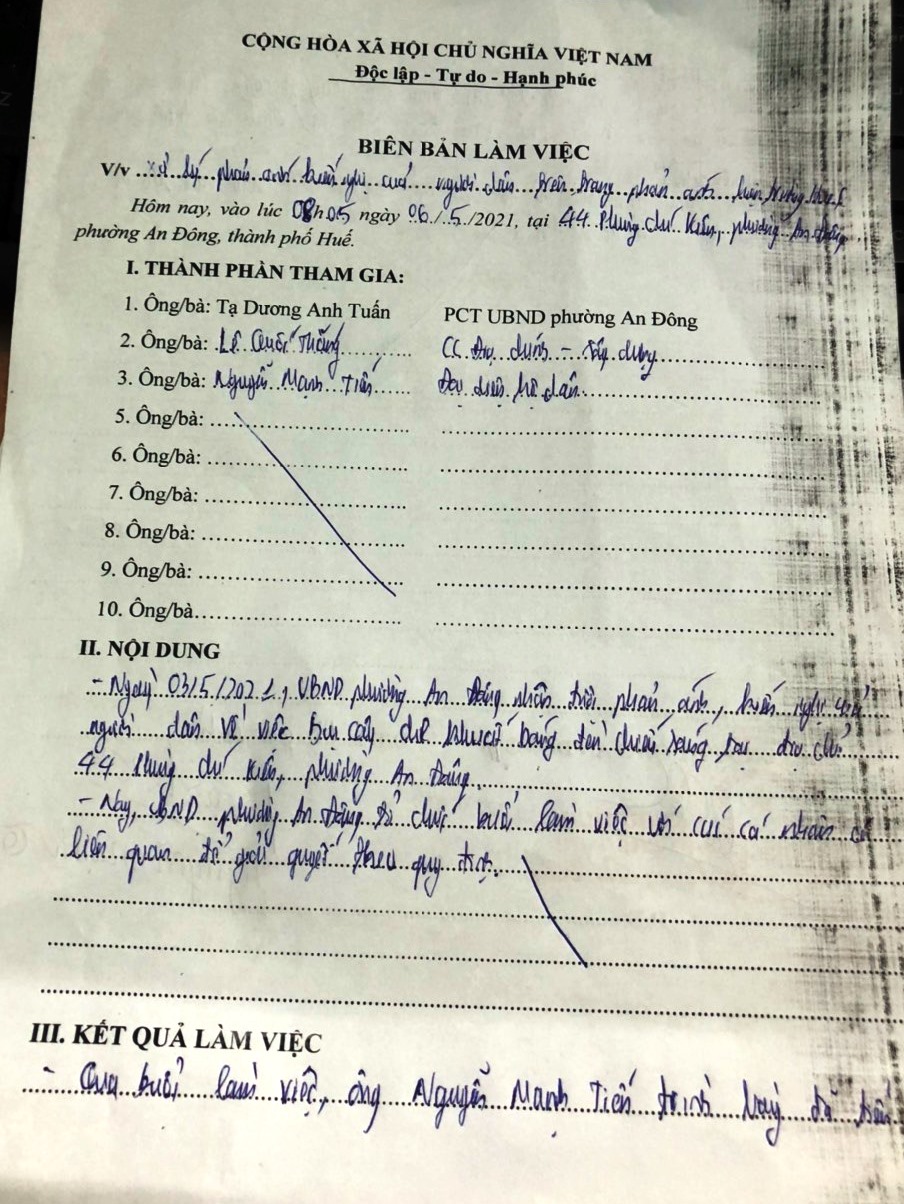 CỘNG HÒA XÃ HỘI CHỦ NGHĨA VIỆT NAM
Độc lập - Tự do - Hạnh phúc
BIÊN BẢN LÀM VIỆC
V/v xử lý phản ánh kiến nghị của người dân trên trang phản ánh hiện trường
Hôm nay, vào lúc 08h05 ngày 06/5/2021, tại 44 Phùng Chí Kiên, phường An Đông,
phường An Đông, thành phố Huế.
I. THÀNH PHẦN THAM GIA:
1. Ông/bà: Tạ Dương Anh Tuấn PCT UBND phường An Đông
2. Ông/bà: Lê Quốc Thắng CC Địa chính - Xây dựng
3. Ông/bà: Nguyễn Mạnh Tiến Đại diện hộ dân
5. Ông/bà:
6. Ông/bà:
7. Ông/bà:
8. Ông/bà:
9. Ông/bà:
10. Ông/bà
II. NỘI DUNG
- Ngày 03/5/2021, UBND phường An Đông nhận được phản ánh, kiến nghị của
người dân về việc cây che khuất bóng đèn chiếu sáng, tại địa chỉ
44 Phùng Chí Kiên, phường An Đông.
- Nay, UBND phường An Đông tổ chức buổi làm việc với các cá nhân có
liên quan để giải quyết theo quy định.
III. KẾT QUẢ LÀM VIỆC
- Qua buổi làm việc, ông Nguyễn Mạnh Tiến trình bày đã